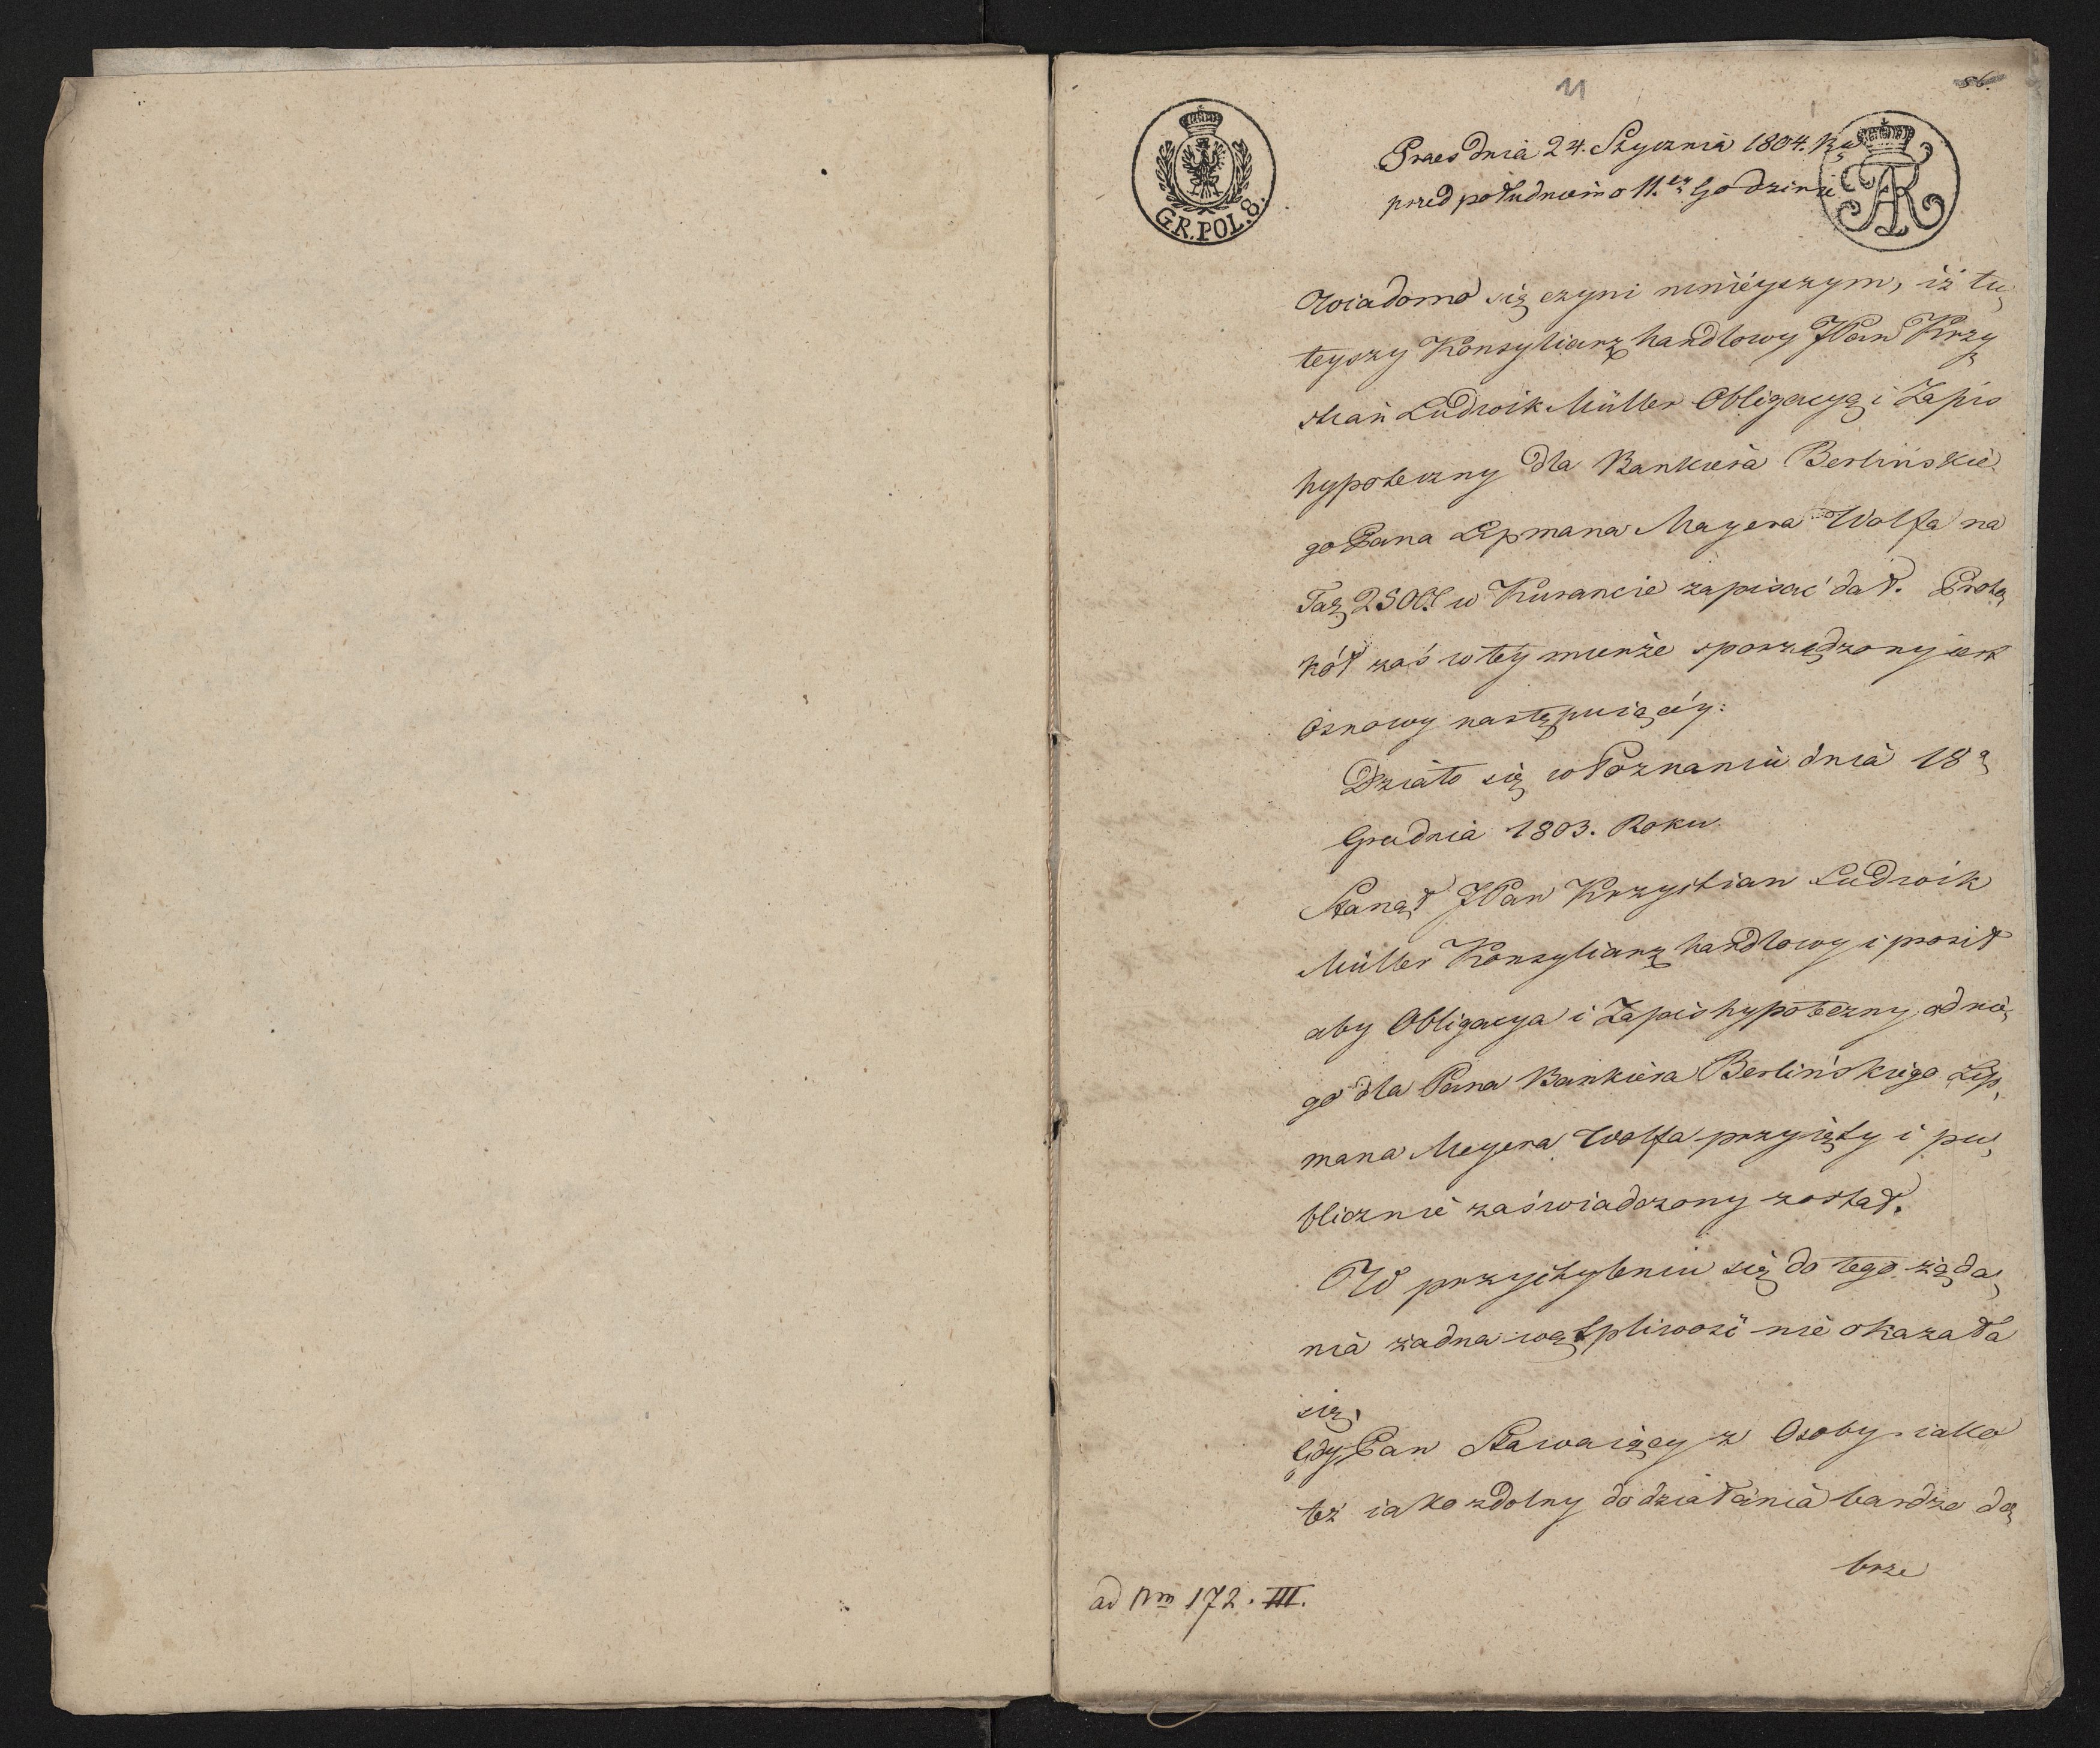 11
86.
GR. POL. 8.
Praes dnia 24. Stycznia 1804. Ru
przed południem o 11.tą Godzinie
Wiadomo się czyni ninieyszym, iż tu„
teyszy Konsyliarz handlowy JPan Krzy„
stian Ludwik Müller Obligacyą i Zapis
hypoteczny dla Bankiera Berlińskie„
go Pana Lipmana Mayera Wolfa na
w Kurancie zapisać dał. Proto„
kół zaś w tey mierze sporządzony iest
Osnowy następuiącey:
Działo się w Poznaniu dnia 18o
Grudnia 1803. Roku.
Stanął JPan Krzystian Ludwik
Müller Konsyliarz handlowy i prosił
aby Obligacya i Zapis hypoteczny od nie„
go dla Pana Bankiera Berlińskiego Lip„
mana Meyera Wolfa przyięty i pu„
blicznie zaświadczony został.
W przychyleniu się do tego żąda„
nia żadna wątpliwość nie okazała
się,
Gdy Pan Stawaiący z Osoby iako
też iako zdolny do działania bardzo do„
brze
ad Nm 172. III.